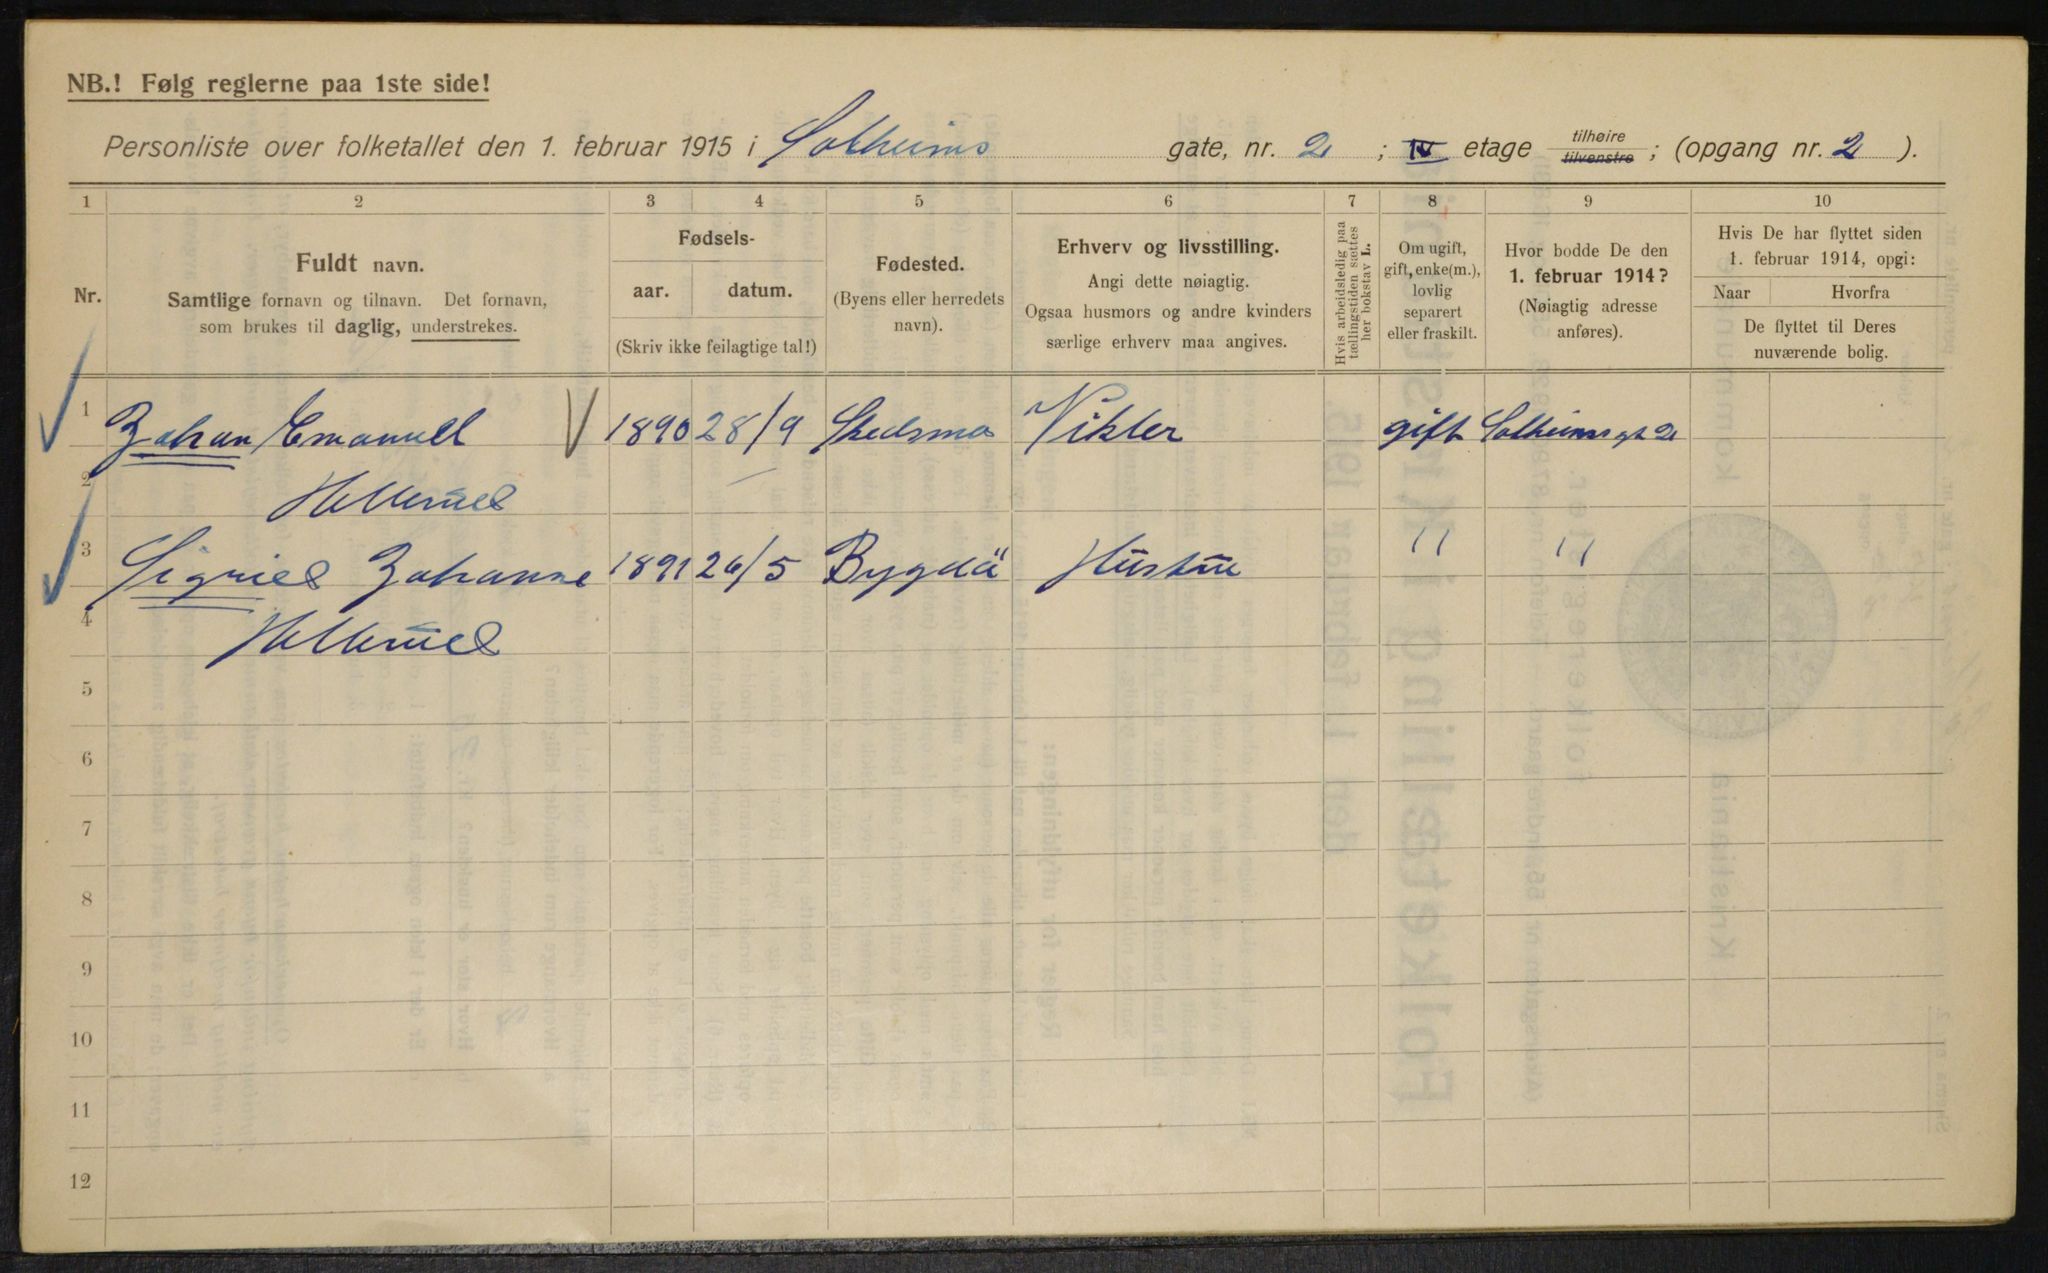 NB.! Følg reglerne paa 1ste side!
Personliste over folketallet den 1. februar 1915 i Solheims gate, nr. 2 ; IV etage tilhøire tilvenstre ; (opgang nr. 2 ).
1 2 3 4 5 6 7 8 9 10
Nr.
Fuldt navn.
Samtlige fornavn og tilnavn. Det fornavn,
som brukes til daglig, understrekes.
Fødsels-
aar. datum.
(Skriv ikke feilagtige tal!)
Fødested.
(Byens eller herredets
navn).
Erhverv og livsstilling.
Angi dette nøiagtig.
Ogsaa husmors og andre kvinders
særlige erhverv maa angives.
Hvis arbeidsledig paa
tællingstiden sættes
her bokstav L.
Om ugift,
gift, enke(m.),
lovlig
separert
eller fraskilt.
Hvor bodde De den
1. februar 1914?
(Nøiagtig adresse
anføres).
Hvis De har flyttet siden
1. februar 1914, opgi:
Naar Hvorfra
De flyttet til Deres
nuværende bolig.
1 Johan Emanuel 1890 28/9 Skedsmo Vikler gift Solheimsgt 2
2
3 Sigrid Johanne 1891 26/5 Bygdö Hustru " "
4
5
6
7
8
9
10
11
12